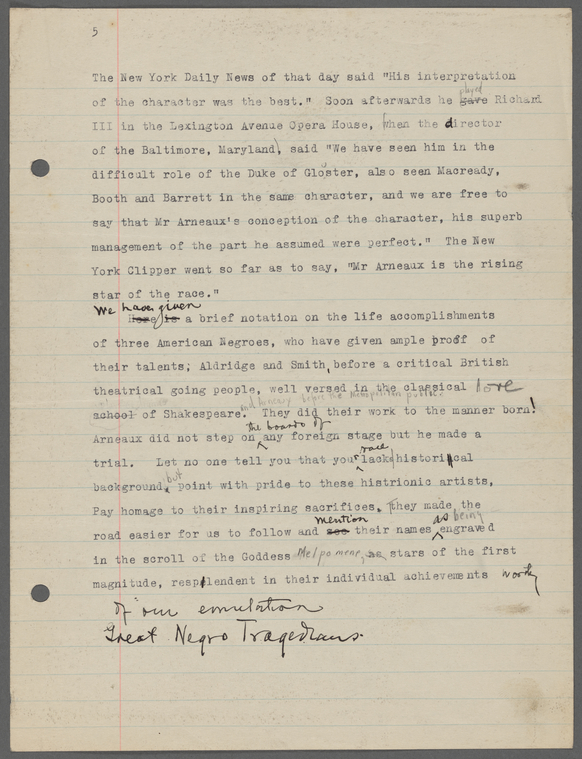 5
The New York Daily News of that day said "His interpretation
of the character was the best." Soon afterwards he gave played Richard
III in the Lexington Avenue Opera House, when the director
of the Baltimore, Maryland, said "We have seen him in the
difficult role of the Duke of Gloster, also seen Macready,
Booth and Barrett in the same character, and we are free to
say that Mr Arneaux's conception of the character, his superb
management of the part he assumed were perfect." The New
York Clipper went so far as to say, "Mr Arneaux is the rising
star of the race."
We have given
Here is a brief notation on the life accomplishments
of three American Negroes, who have given ample proof of
their talents; Aldridge and Smith, before a critical British
theatrical going people, well versed in the classical lore
and before the metropolitan public.
school of Shakespeare. They did their work to the manner born!
the boards of
Arneaux did not step on any foreign stage but he made a
race
trial. Let no one tell you that you lack historical
but
background, point with pride to these histrionic artists,
Pay homage to their inspiring sacrifices. They made the
mention as being
road easier for us to follow and see their names engraved
in the scroll of the Goddess Melpomene, as stars of the first
magnitude, resplendent in their individual achievements worthy
of our emulation
Great Negro Tragedians.